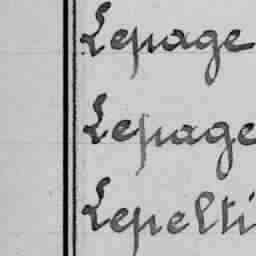 Lepage
Lepage
Lepelti